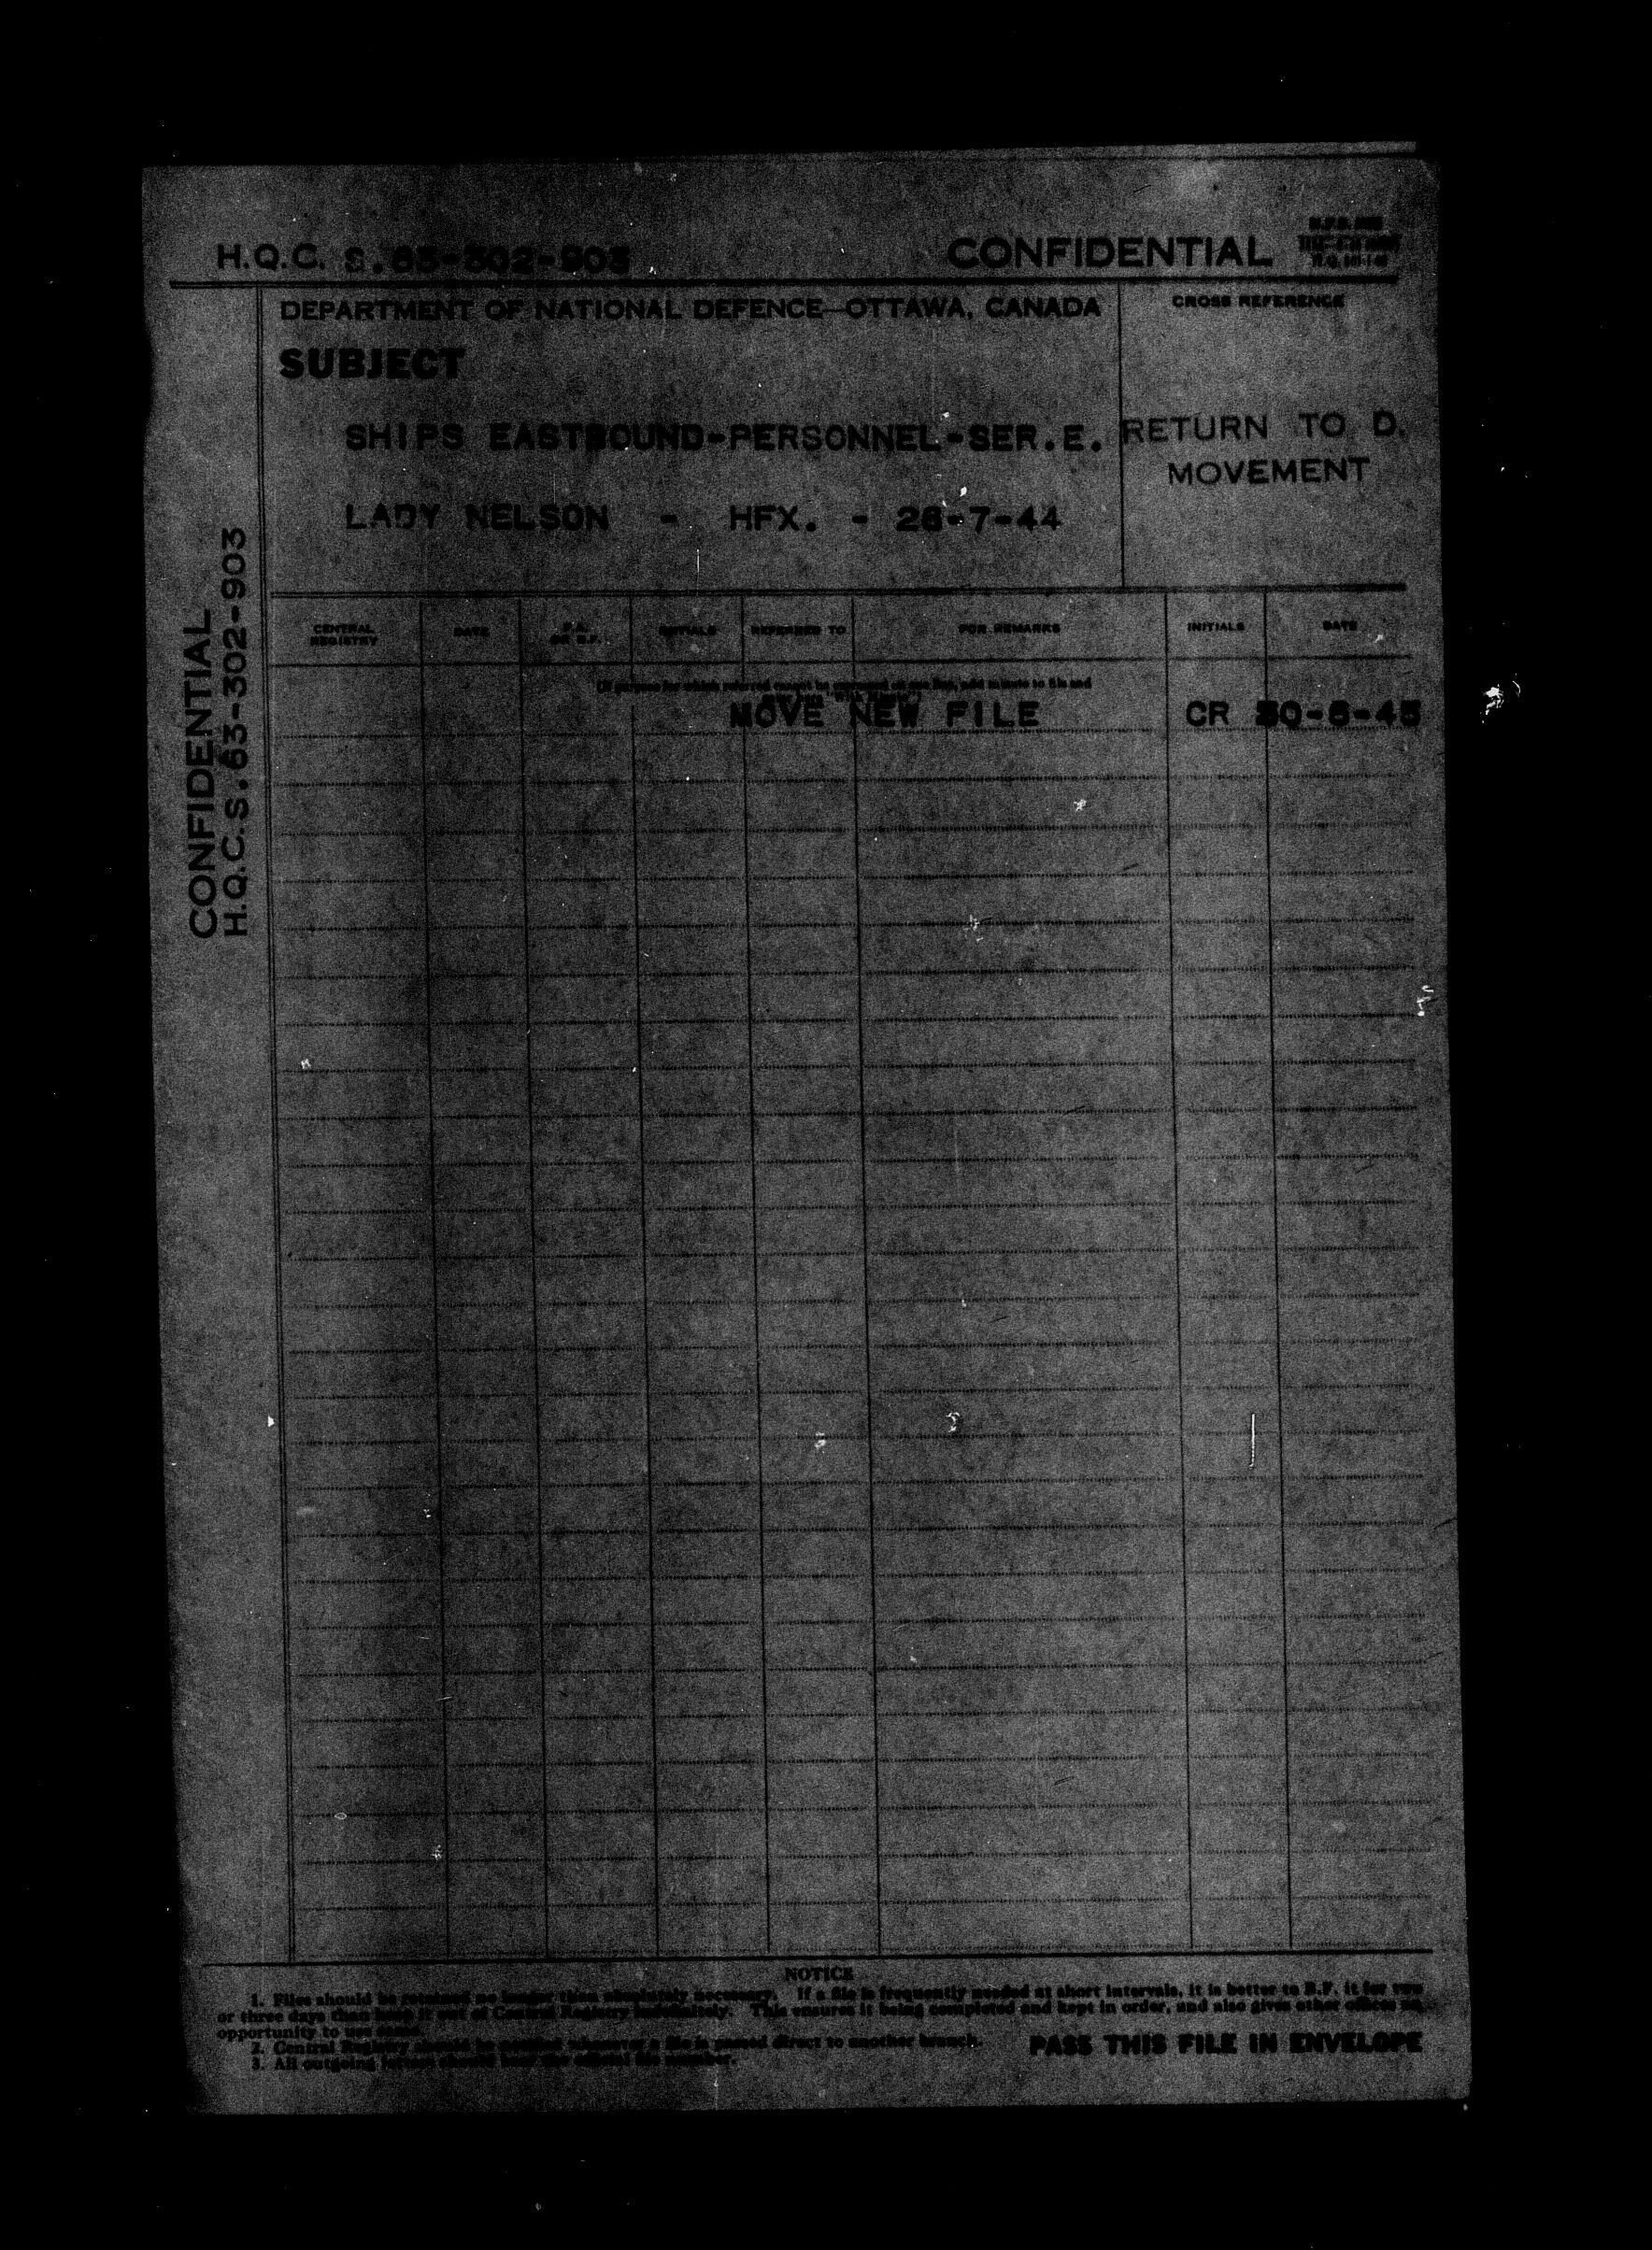 H.Q.C. S.63-302-903
CONFIDENTIAL
DEPARTMENT OF NATIONAL DEFENCE—OTTAWA, CANADA
CROSS REFERENCE
SUBJECT
SHIPS EASTBOUND-PERSONNEL-SER.E.
RETURN TO D.
MOVEMENT
LADY NELSON - HFX. - 28-7-44
CONFIDENTIAL
H.Q.C.S.63-302-903
CENTRAL REGISTRY
DATE
P.A. OR B.F.
INITIALS
REFERRED TO
FOR REMARKS
INITIALS
DATE
(If purpose for which referred cannot be expressed on one line, add minute to file and
MOVE NEW FILE CR 30-6-45
NOTICE
1. Files should be retained no longer than absolutely necessary. If a file is frequently needed at short intervals, it is better to B.F. it for two
or three days than keep it out of Central Registry indefinitely. This ensures it being completed and kept in order, and also gives other offices an
opportunity to use same.
2. Central Registry should be notified whenever a file is passed direct to another branch.
3. All outgoing letters should bear the official file number.
PASS THIS FILE IN ENVELOPE